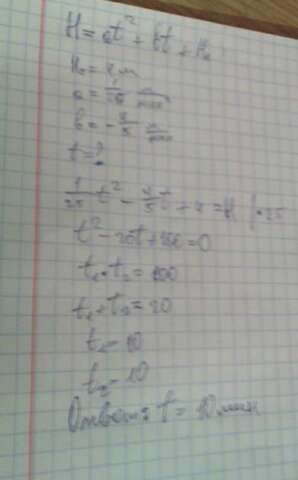 H = at² + bt + H₀
H₀ = 4 м
a = 1/25 м/мин
b = - 4/5 м/мин
t = ?
1/25 t² - 4/5 t + 4 = H | · 25
t² - 20t + 100 = 0
t₁ · t₂ = 100
t₁ + t₂ = 20
t₁ = 10
t₂ = 10
Ответ: t = 10 мин